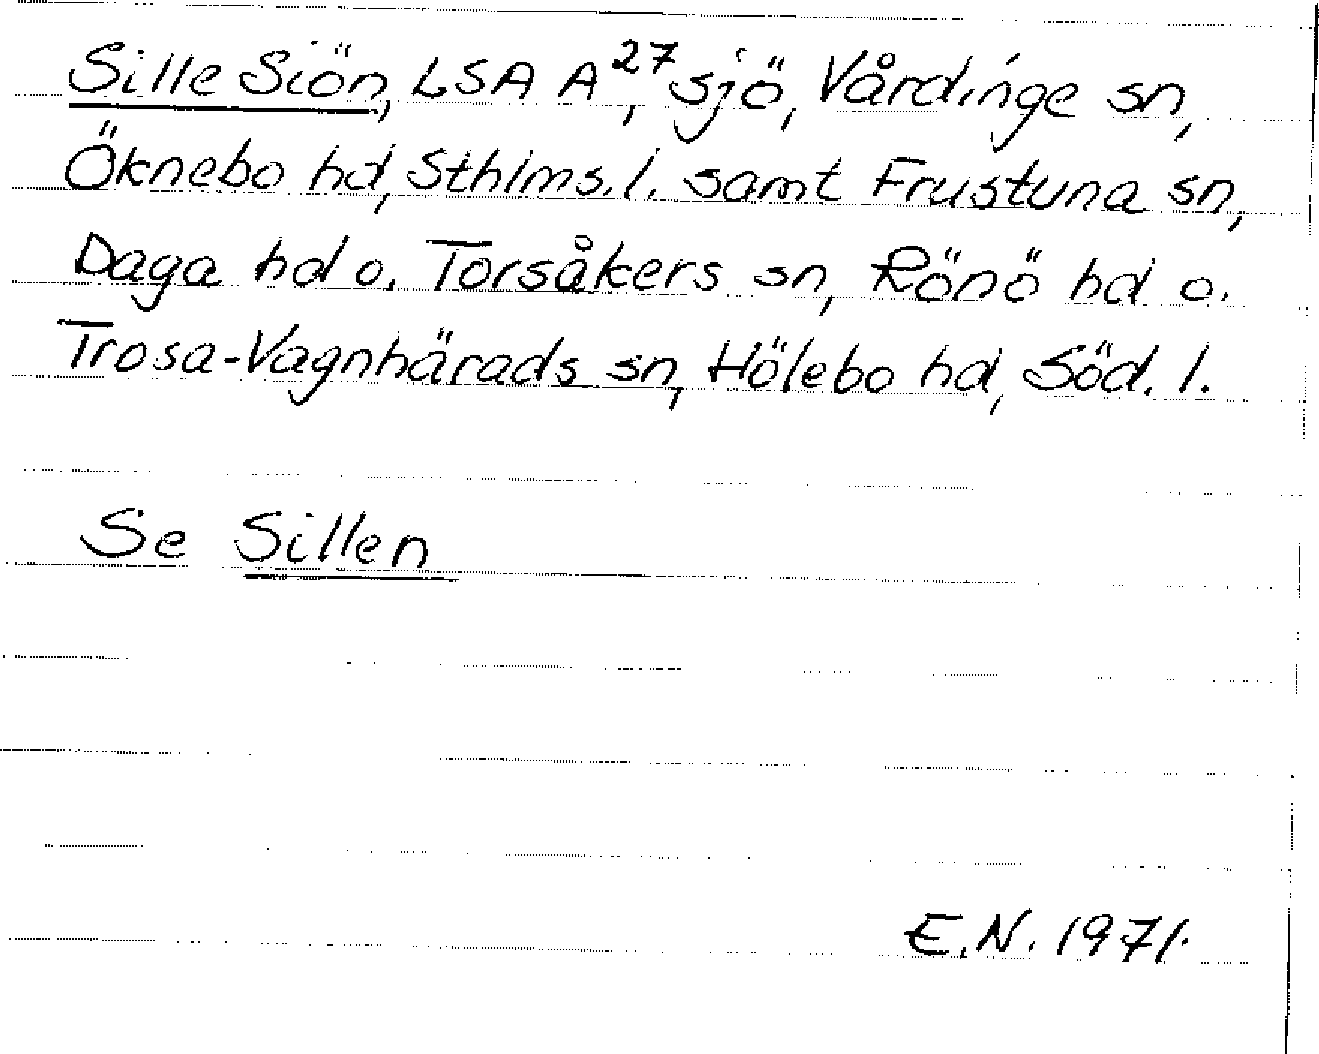 Sille Siön, LSA A27, sjö, Vårdinge sn,
Öknebo hd, Sthlms.l. samt Frustuna sn,
Daga hd o. Torsåkers sn, Rönö hd o.
Trosa-Vagnhärads sn, Hölebo hd, Söd. l.
Se Sillen
E.N. 1971.